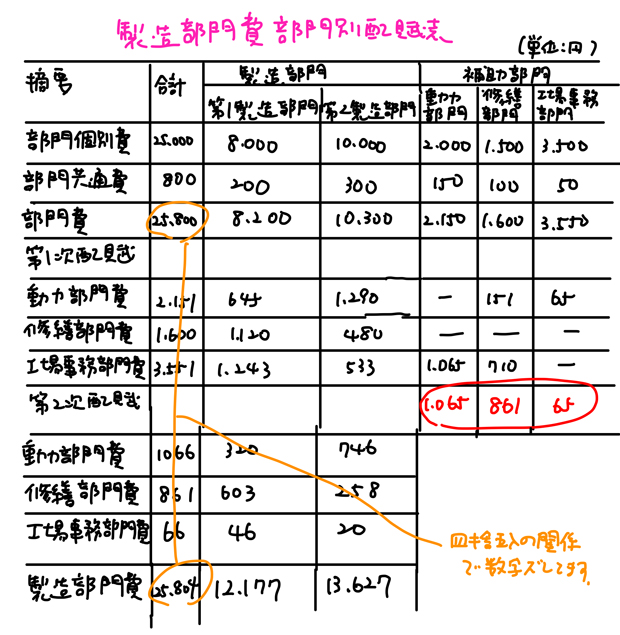 製造部門費部門別配賦表
(単位:円)
摘要 合計 製造部門 補助部門
第1製造部門 第2製造部門 動力部門 修繕部門 工場事務部門
部門個別費 25.000 8.000 10.000 2.000 1.500 3.500
部門共通費 800 200 300 150 100 50
部門費 25.800 8.200 10.300 2.150 1.600 3.550
第1次配賦
動力部門費 2.151 645 1.290 — 151 65
修繕部門費 1.600 1.120 480 — — —
工場事務部門費 3.551 1.243 533 1.065 710 —
第2次配賦 1.065 861 65
動力部門費 1066 320 746
修繕部門費 861 603 258
工場事務部門費 66 46 20
四捨五入の関係
で数字ズレてます。
製造部門費 25.804 12.177 13.627